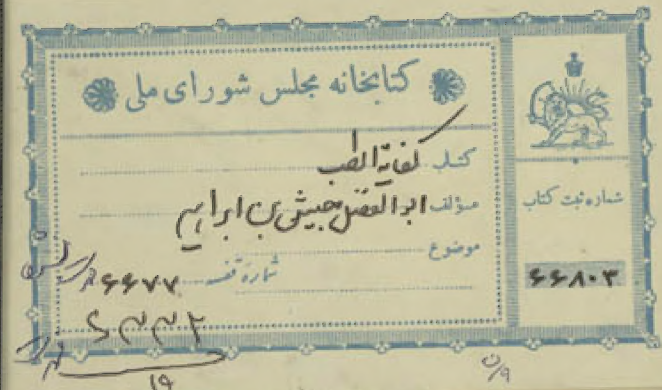 کتابخانه مجلس شورای ملی
کتاب کفایة الطب
مؤلف ابوالفضل حبیش بن ابراهیم
موضوع
شماره قفسه ۶۶۷۷
شماره ثبت کتاب
۶۶۸۰۳
۱۹